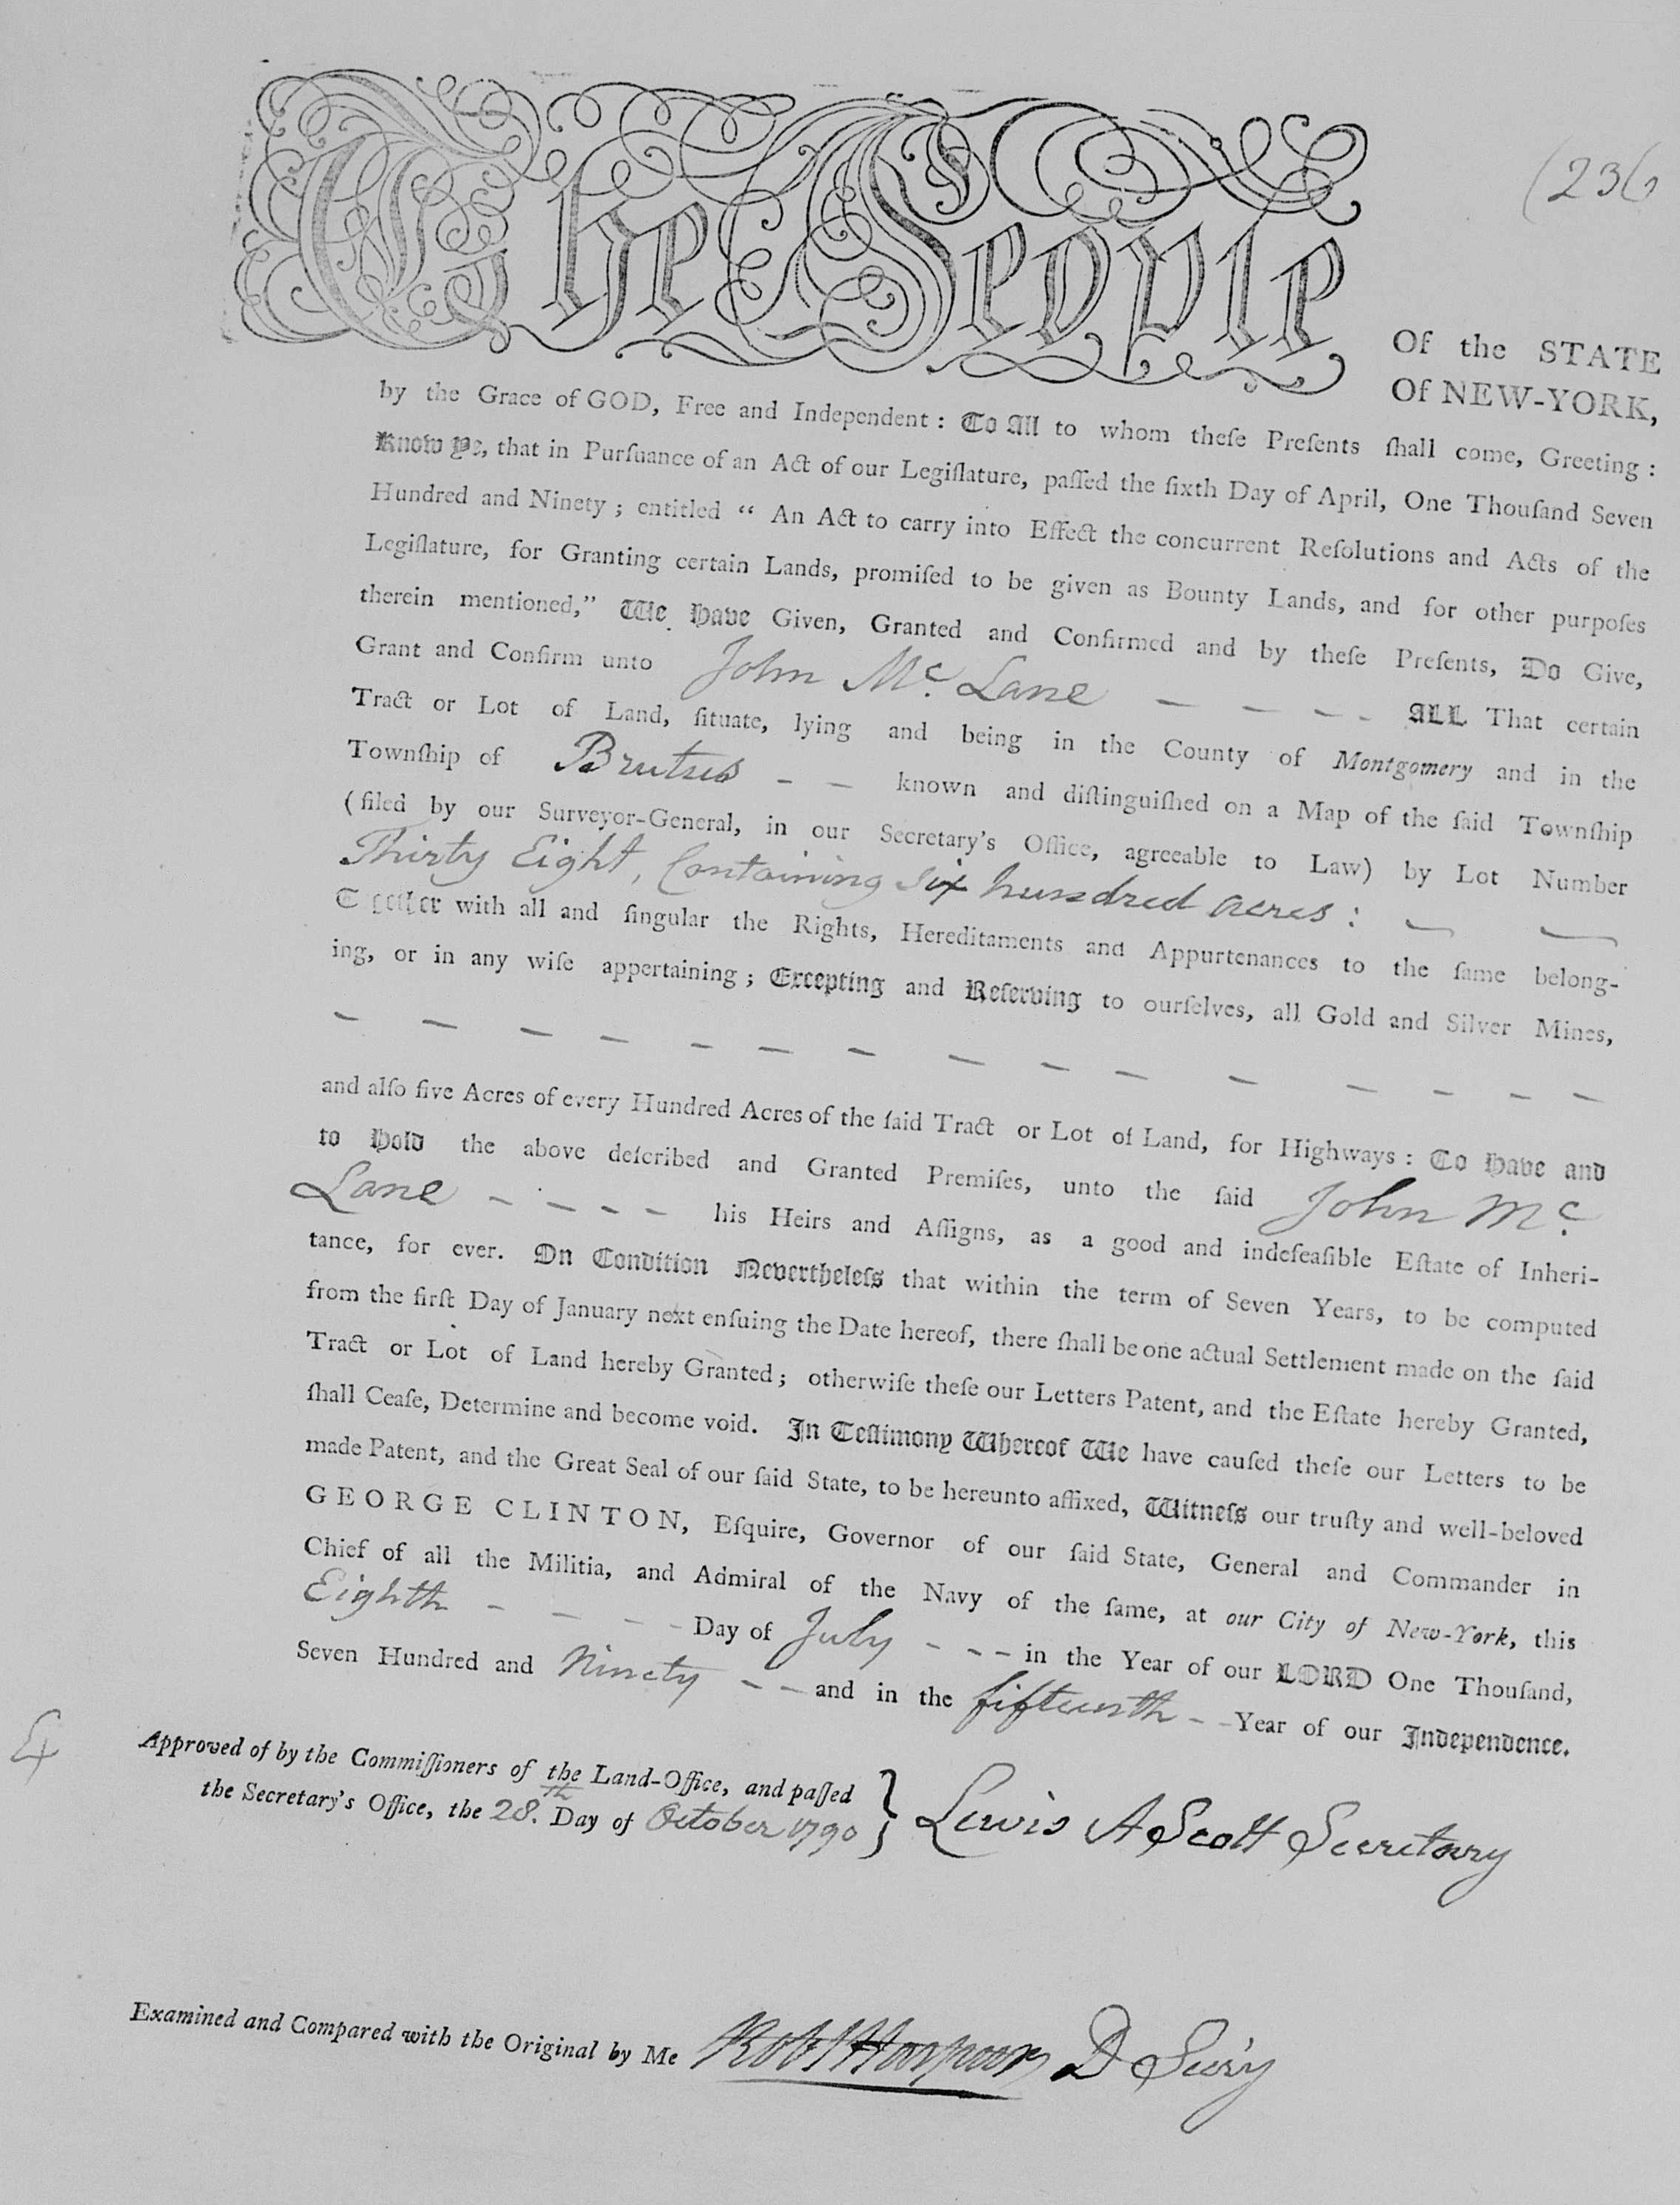 (236
The People
Of the STATE
Of NEW-YORK,
by the Grace of GOD, Free and Independent : To All to whom theſe Preſents ſhall come, Greeting :
Know Ye, that in Purſuance of an Act of our Legiſlature, paſſed the ſixth Day of April, One Thouſand Seven
Hundred and Ninety ; entitled “ An Act to carry into Effect the concurrent Reſolutions and Acts of the
Legiſlature, for Granting certain Lands, promiſed to be given as Bounty Lands, and for other purpoſes
therein mentioned,” We Have Given, Granted and Confirmed and by theſe Preſents, Do Give,
Grant and Confirm unto John Mc. Lane – – – – ALL That certain
Tract or Lot of Land, ſituate, lying and being in the County of Montgomery and in the
Townſhip of Brutus – – known and diſtinguiſhed on a Map of the ſaid Townſhip
(filed by our Surveyor-General, in our Secretary's Office, agreeable to Law) by Lot Number
Thirty Eight, Containing Six hundred acres : – –
Together with all and ſingular the Rights, Hereditaments and Appurtenances to the ſame belong-
ing, or in any wiſe appertaining ; Excepting and Reſerving to ourſelves, all Gold and Silver Mines,
– – – – – – – – – – – – – – –
and alſo five Acres of every Hundred Acres of the ſaid Tract or Lot of Land, for Highways : To Have and
to Hold the above deſcribed and Granted Premiſes, unto the ſaid John Mc.
Lane – – – – his Heirs and Aſſigns, as a good and indefeaſible Eſtate of Inheri-
tance, for ever. On Condition Nevertheleſs that within the term of Seven Years, to be computed
from the firſt Day of January next enſuing the Date hereof, there ſhall be one actual Settlement made on the ſaid
Tract or Lot of Land hereby Granted ; otherwiſe theſe our Letters Patent, and the Eſtate hereby Granted,
ſhall Ceaſe, Determine and become void. In Teſtimony Whereof We have cauſed theſe our Letters to be
made Patent, and the Great Seal of our ſaid State, to be hereunto affixed, Witneſs our truſty and well-beloved
GEORGE CLINTON, Eſquire, Governor of our ſaid State, General and Commander in
Chief of all the Militia, and Admiral of the Navy of the ſame, at our City of New-York, this
Eighth – – – – Day of July – – – in the Year of our LORD One Thouſand,
Seven Hundred and Ninety – – and in the fifteenth – – Year of our Independence.
Approved of by the Commiſſioners of the Land-Office, and paſſed
the Secretary's Office, the 28.th Day of October 1790 } Lewis A Scott Secretary
Examined and Compared with the Original by Me Robt Harpur D Secry